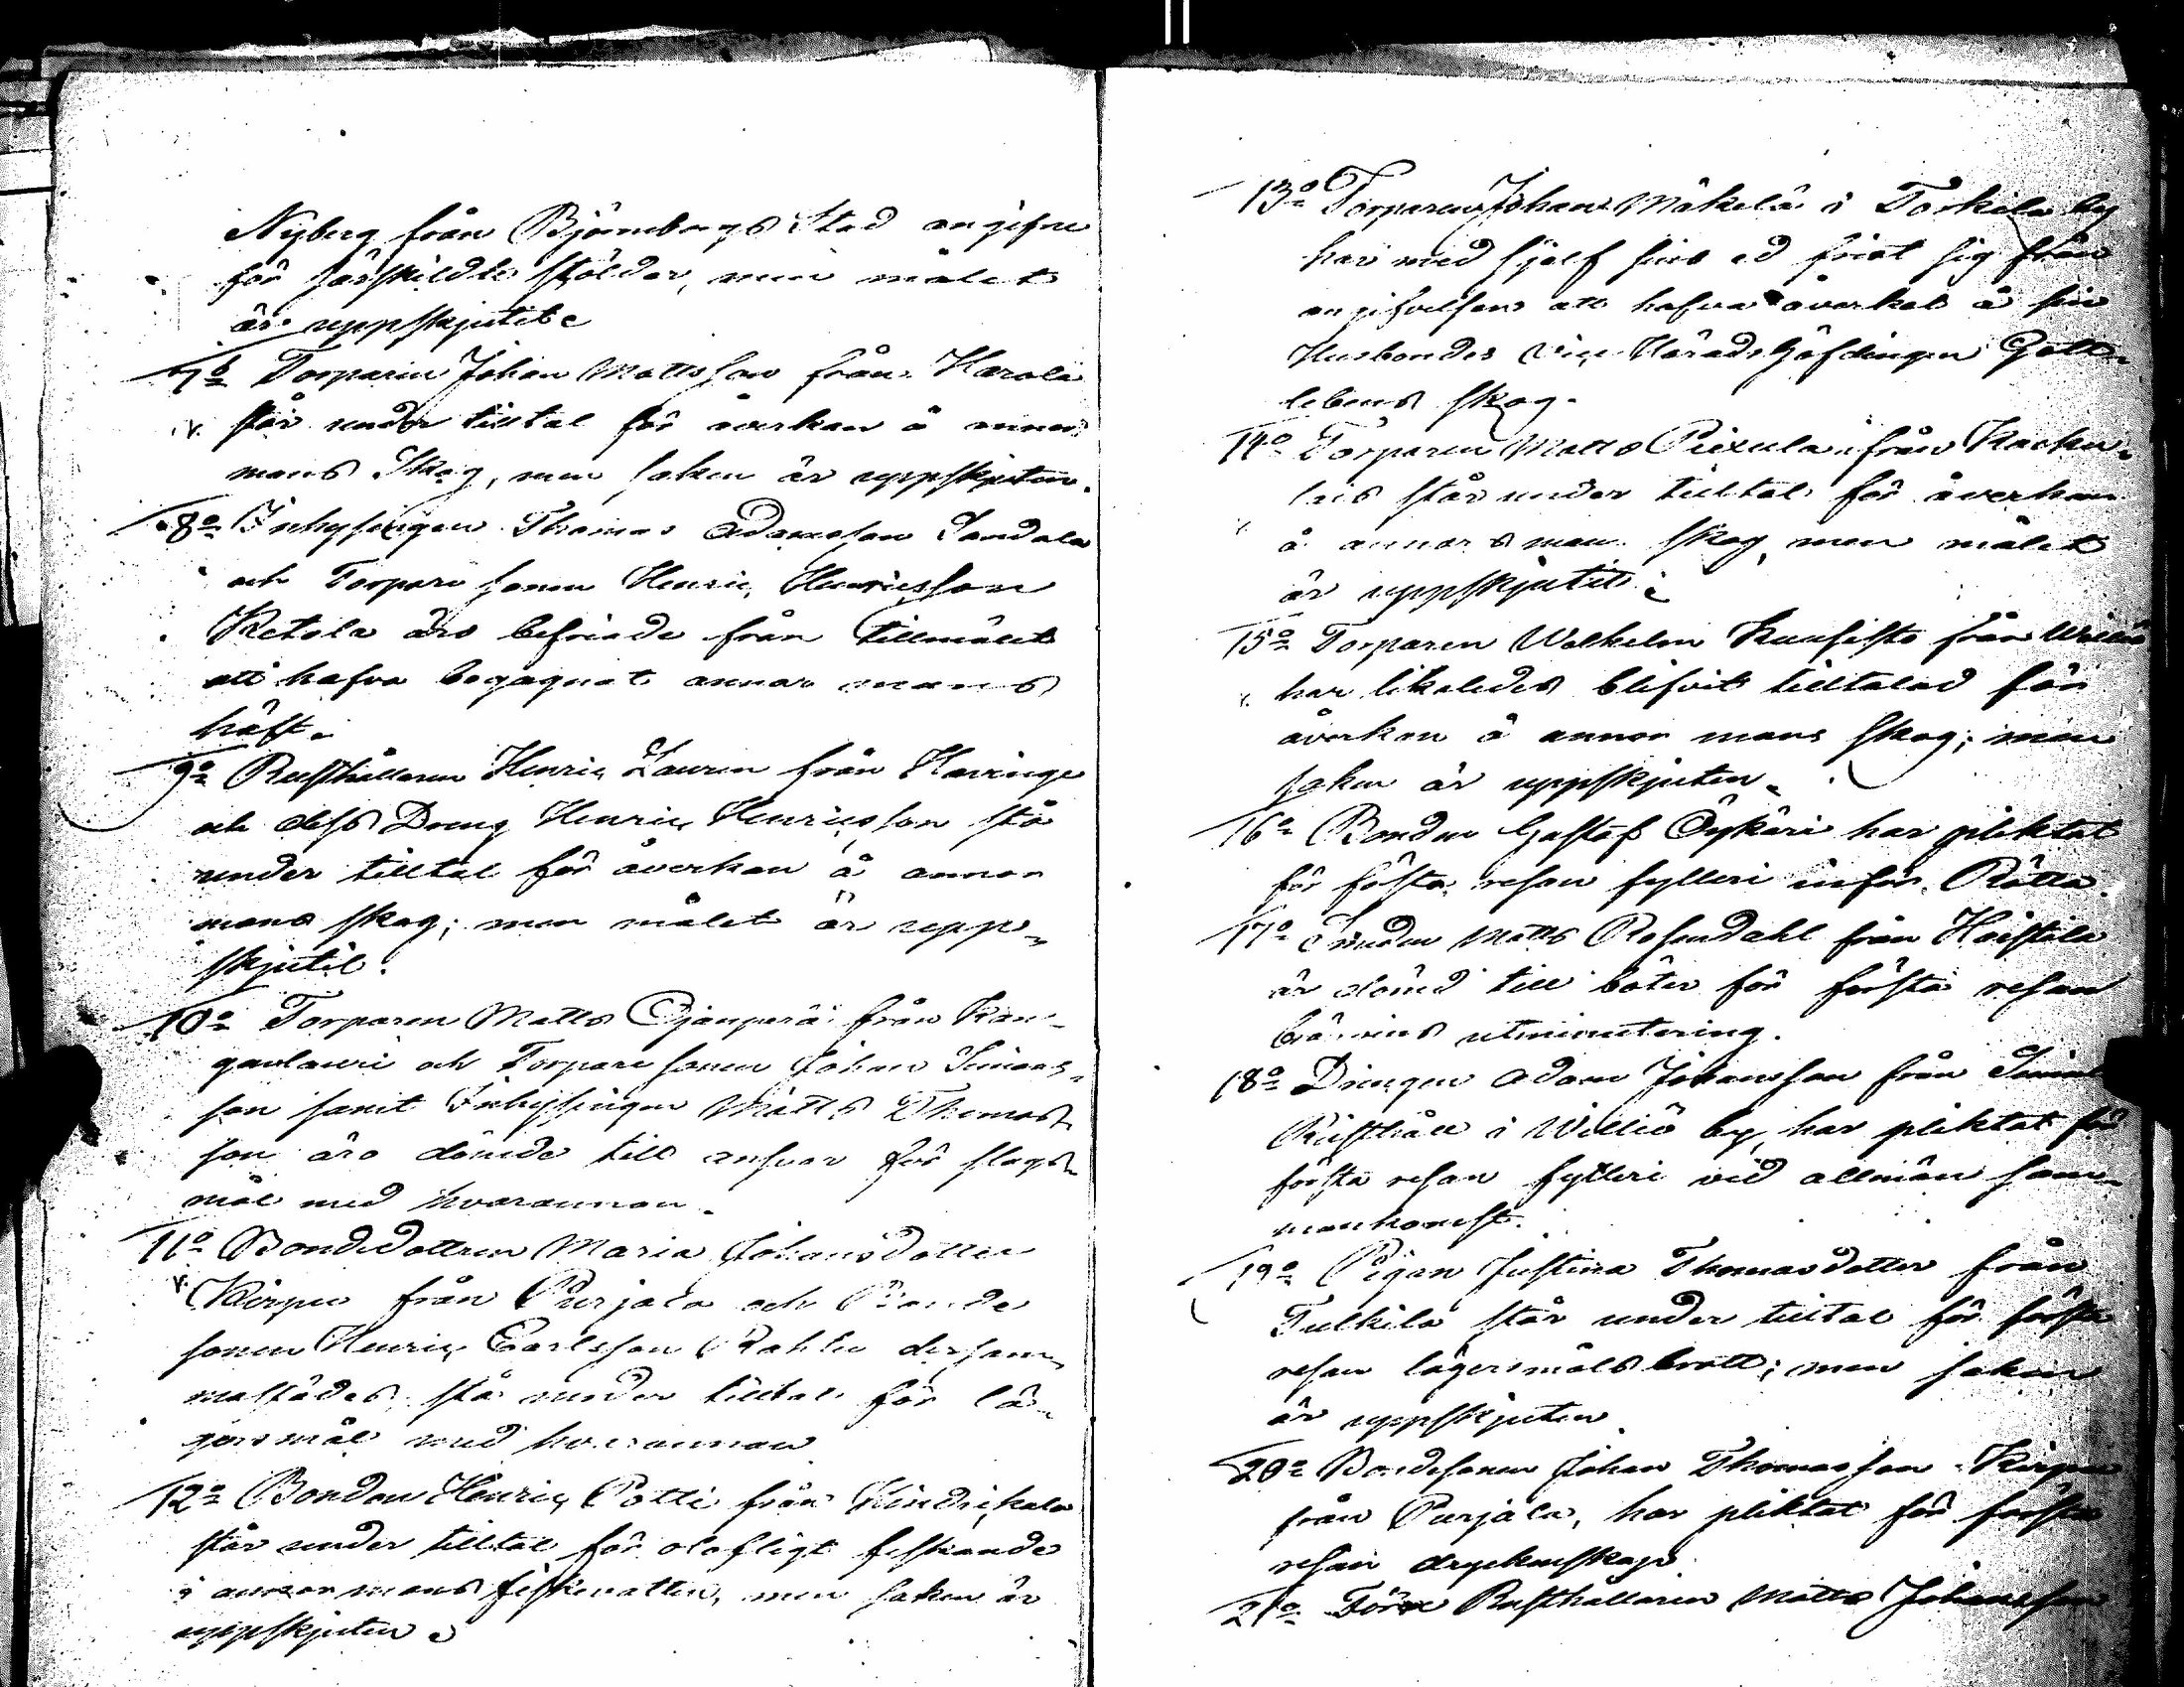 Nyberg från Björneborgs Stad angifne
för särskildte stölder, men målet
är uppskjutit.
7o Torparen Johan Mattsson från Harola
står under tilltal för åverkan å annor
mans Skog, men saken är uppskjuten.
8o Inhysingen Thomas Adamsson Sandala
och Torpare sonen Henric Henricsson
Ketola äro befriade från tillmälet
att hafva begagnat annor mans
häst.
9o Rusthållaren Henric Lauren från Havinge
och dess Dreng Henric Henricsson stå
under tilltal för åverkan å annor
mans skog; men målet är upp-
skjutit.
10o Torparen Matts Ojanperä från Kan-
gavlauri och Torpare sonen Johan Simons-
son samt Inhysingen Matts Thomas-
son äro dömde till ansvar för slags-
mål med hvarannan.
11o Bondedottren Maria Johansdotter
Kirpu från Purjala och Bonde
sonen Henric Carlsson Dahlu dersam-
mastädes, stå under tilltal för lä-
gersmål med hvarannan
12o Bonden Henric Potti från Hindikala
står under tilltal för olofligt fiskande
i annor mans fiskevatten, men saken är
uppskjuten.
13o Torparen Johan Mäkelä i Torkila by
har med sjelf sins ed friat sig från
angifvelsen att hafva åverkat å sin
Husbondes Vice Häradshöfdingen Gott-
lebens skog.
14o Torparen Matts Piexula från Kacku-
lais står under tilltal för åverkan
å annors man skog, men målet
är uppskjutit.
15o Torparen Welhelm Kuusisto från Williö
har likaledes blifvit tilltalad för
åverkan å annor mans skog; men
saken är uppskjuten.
16o Bonden Gustaf Öykäri har pliktat
för första resan fylleri inför Rätta.
17o Smeden Matts Rosendahl från Haistila
är dömd till böter för första resan
brännvins utminutering.
18o Drengen Adam Johansson från
Rusthåll i Williö by, har pliktat för
första resan fylleri vid allmän sam-
mankomst.
19o Pigan Justina Thomasdotter från
Tulkila står under tilltal för första
resan lägersmåls brott; men saken
är uppskjuten
20o Bondesonen Johan Thomasson Kirpu
från Purjala, har pliktat för första
resan dryckenskap.
21o Förre Rusthållaren Matts Johansson